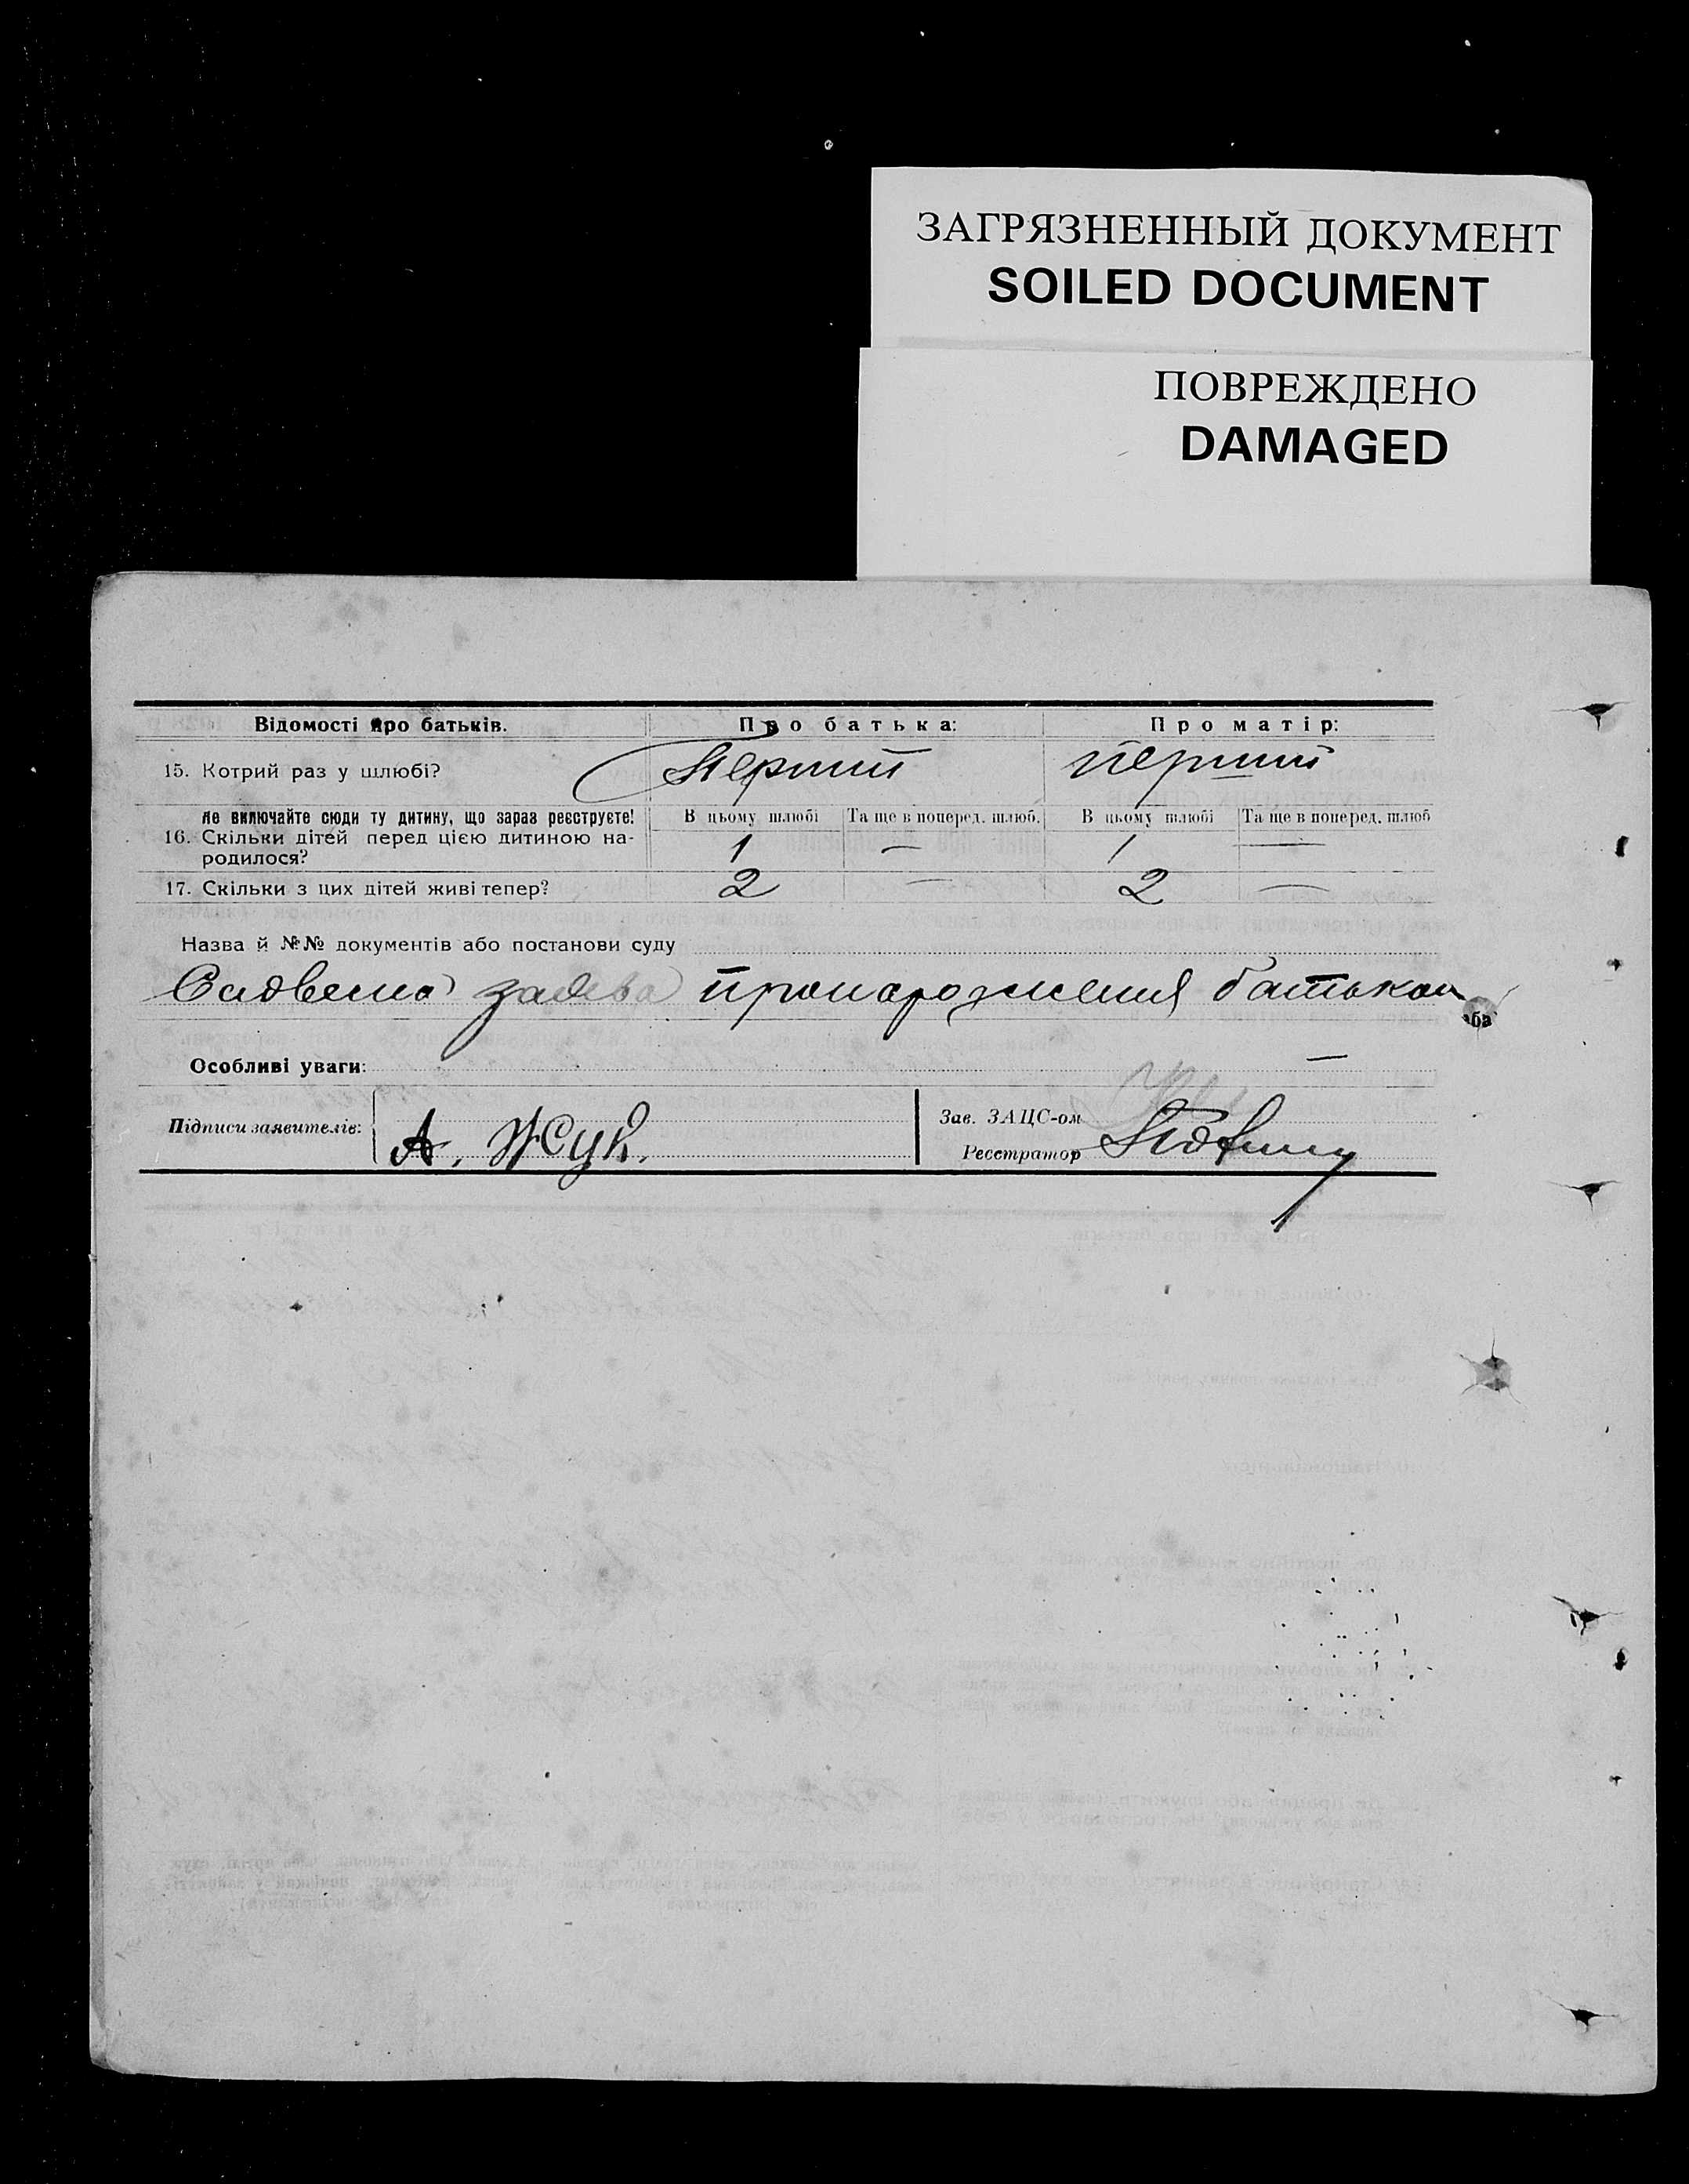 ЗАГРЯЗНЕННЫЙ ДОКУМЕНТ
SOILED DOCUMENT
ПОВРЕЖДЕНО
DAMAGED
Відомості про батьків. Про батька: Про матір:
15. Котрий раз у шлюбі? Перший перший
Не включайте сюди ту дитину, що зараз реєструєте! В цьому шлюбі Та ще в попеpед. шлюб. В цьому шлюбі Та ще в попеpед. шлюб
16. Скільки дітей перед цією дитиною на- 1 — 1 —
родилося?
17. Скільки з цих дітей живі тепер? 2 — 2 —
Назва й №№ документів або постанови суду
заява пронародження батьком
ба
Особливі уваги: —
Підписи заявителів: А. Жук. Зав. ЗАЦС-ом
Реєстратор